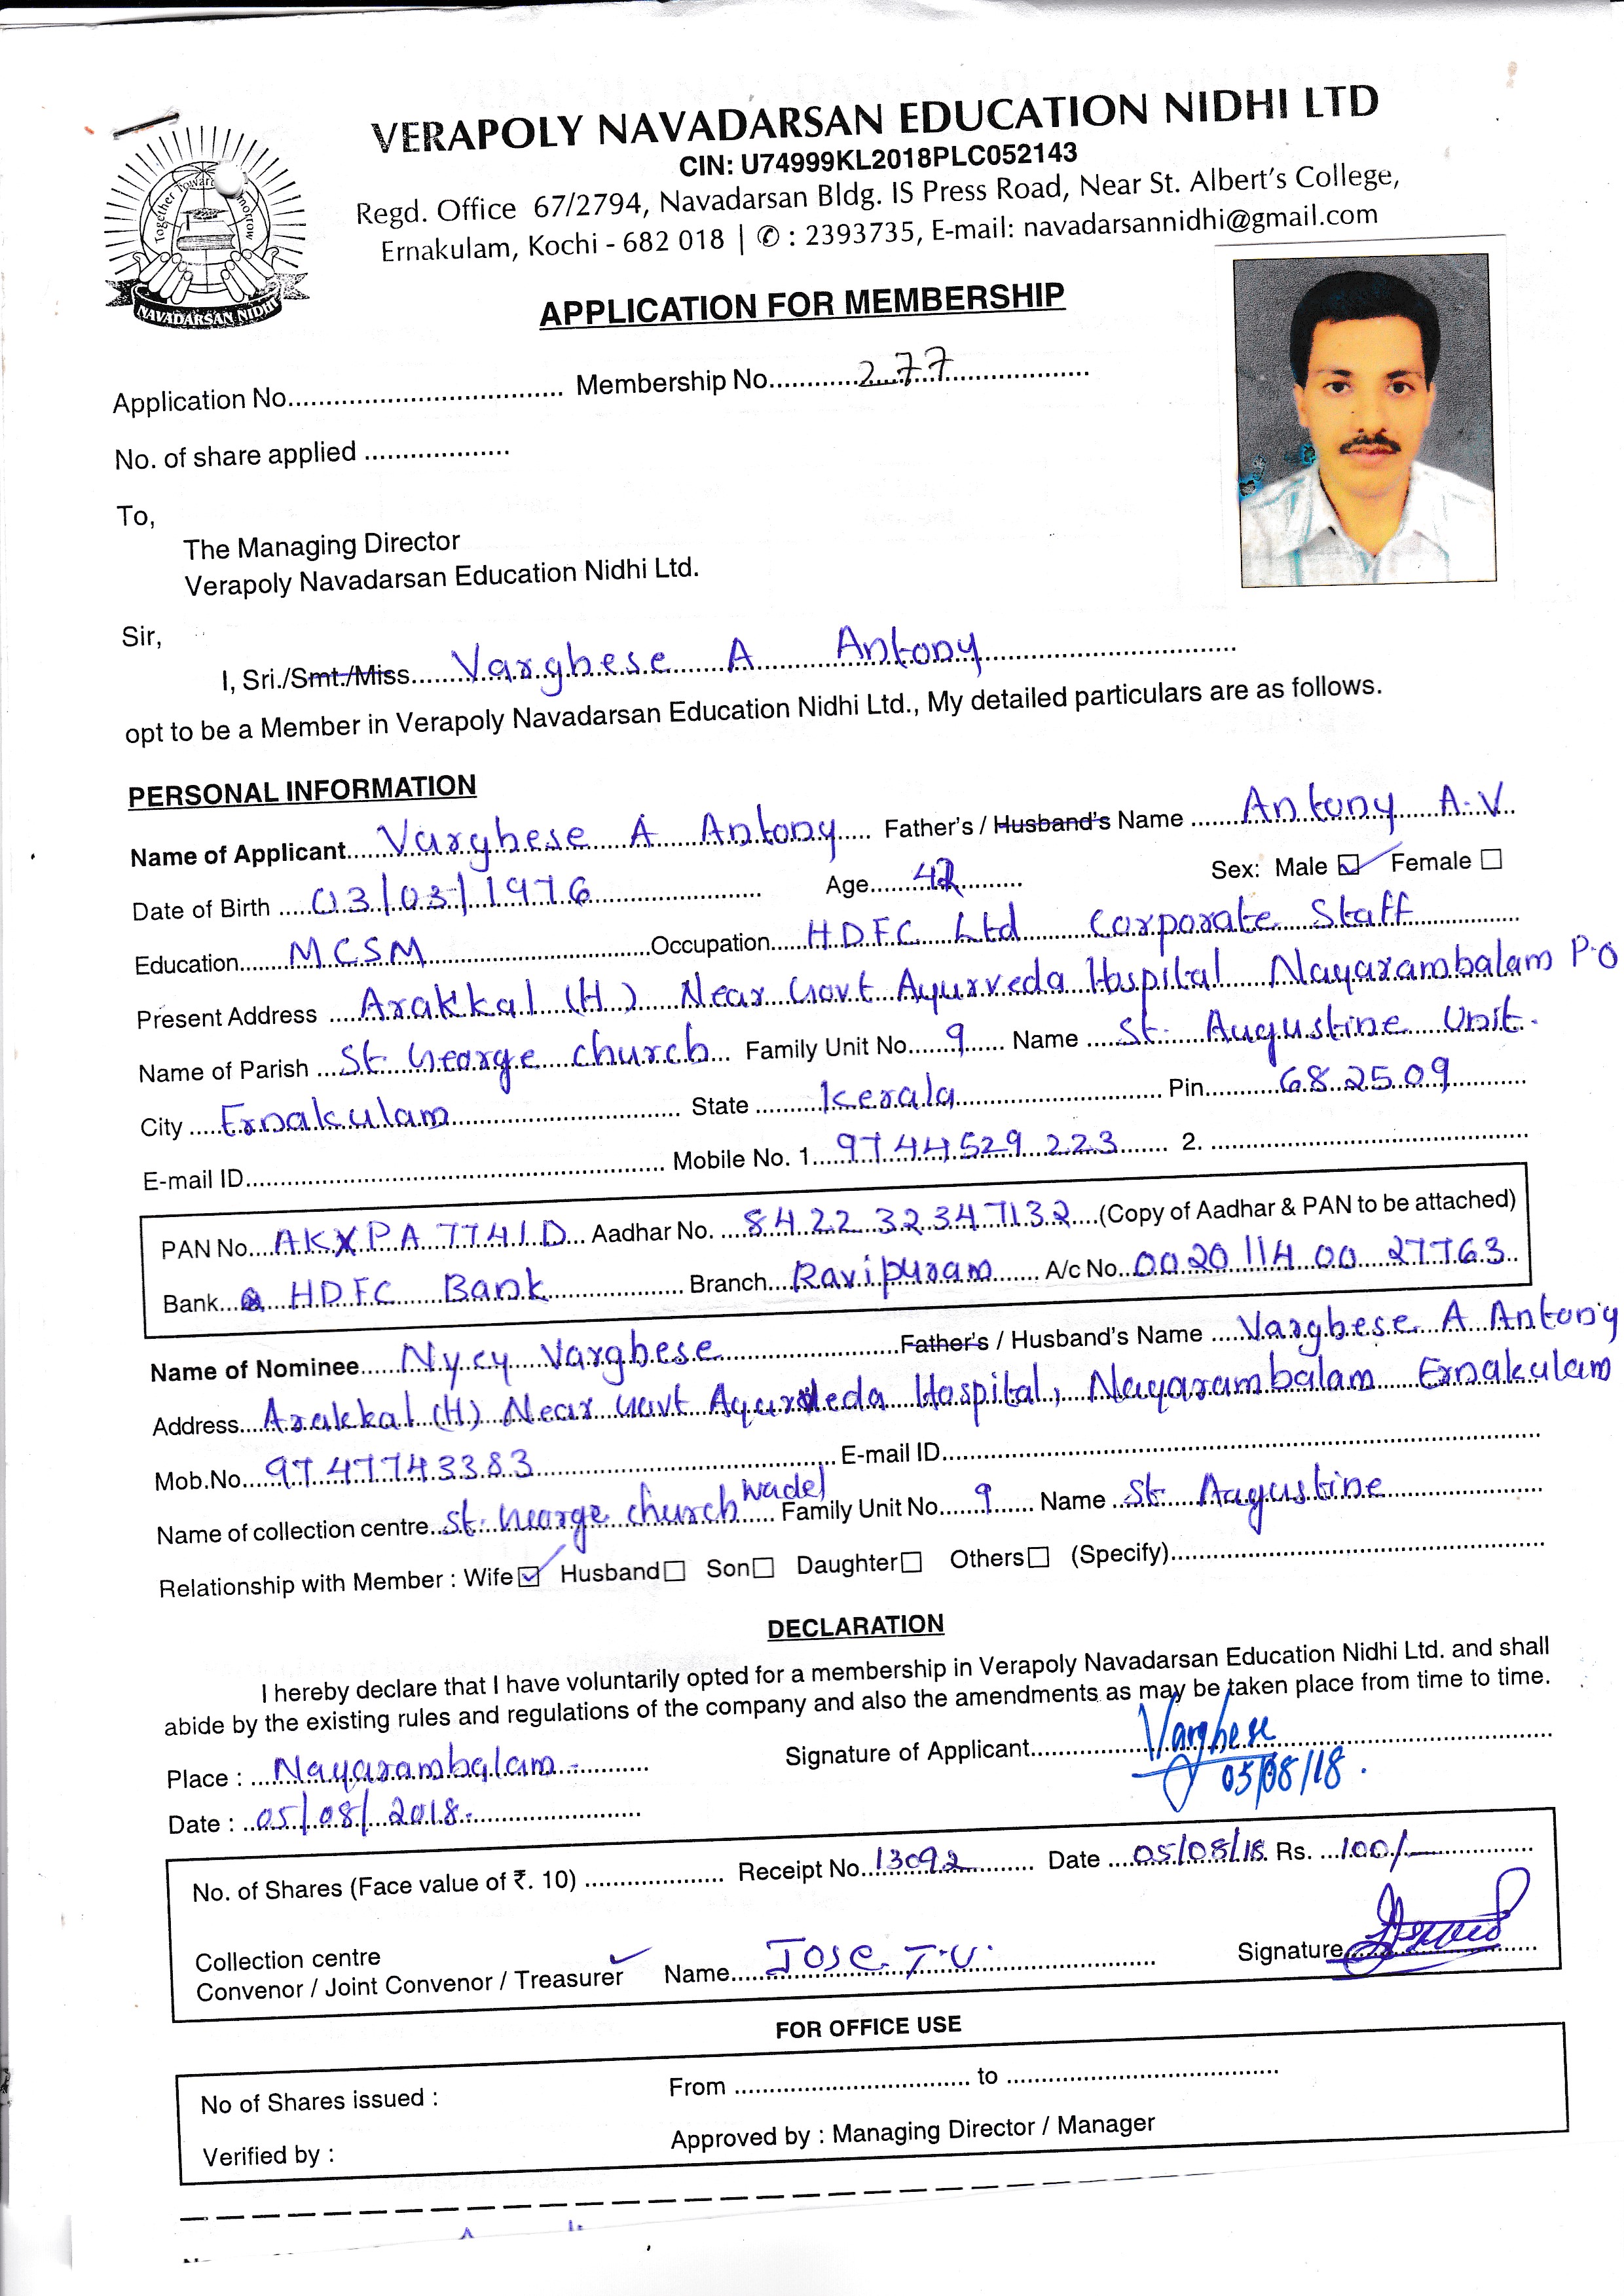 VERAPOLY NAVADARSAN EDUCATION NIDHI LTD
CIN: U74999KL2018PLC052143
Regd. Office 67/2794, Navadarsan Bldg. IS Press Road, Near St. Albert's College,
Ernakulam, Kochi - 682 018 | ✆ : 2393735, E-mail: navadarsannidhi@gmail.com
Together Towards
NAVADARSAN NIDHI
APPLICATION FOR MEMBERSHIP
Application No.................... Membership No. 277
No. of share applied ...................
To,
The Managing Director
Verapoly Navadarsan Education Nidhi Ltd.
Sir,
I, Sri./Smt./Miss Varghese A Antony
opt to be a Member in Verapoly Navadarsan Education Nidhi Ltd., My detailed particulars are as follows.
PERSONAL INFORMATION
Name of Applicant Varghese A Antony Father's / Husband's Name Antony A.V
Date of Birth 03/03/1976 Age 42 Sex: Male ☑ Female ☐
Education MCSM Occupation HDFC Ltd Corporate Staff
Present Address Arakkal (H) Near Govt Ayurveda Hospital Nayarambalam P.O
Name of Parish St. George church Family Unit No. 9 Name St. Augustine Unit.
City Ernakulam State Kerala Pin 682509
E-mail ID.................... Mobile No. 1. 9744529223 2. ....................
PAN No. AKXPA7741D Aadhar No. 842232347132 (Copy of Aadhar & PAN to be attached)
Bank HDFC Bank Branch Ravipuram A/c No. 00201140027763
Name of Nominee Nycy Varghese Father's / Husband's Name Varghese A Antony
Address Arakkal (H) Near Govt Ayurveda Hospital, Nayarambalam Ernakulam
Mob.No. 9747743383 E-mail ID....................
Name of collection centre St. George church Family Unit No. 9 Name St. Augustine
Relationship with Member : Wife ☑ Husband ☐ Son ☐ Daughter ☐ Others ☐ (Specify)....................
DECLARATION
I hereby declare that I have voluntarily opted for a membership in Verapoly Navadarsan Education Nidhi Ltd. and shall
abide by the existing rules and regulations of the company and also the amendments as may be taken place from time to time.
Place : Nayarambalam Signature of Applicant Varghese
Date : 05/08/2018 05/08/18.
No. of Shares (Face value of ₹. 10) .................... Receipt No. 13092 Date 05/08/18 Rs. 100/-
Collection centre
Convenor / Joint Convenor / Treasurer ✓ Name Jose T.V. Signature
FOR OFFICE USE
No of Shares issued : From .................... to ....................
Verified by : Approved by : Managing Director / Manager